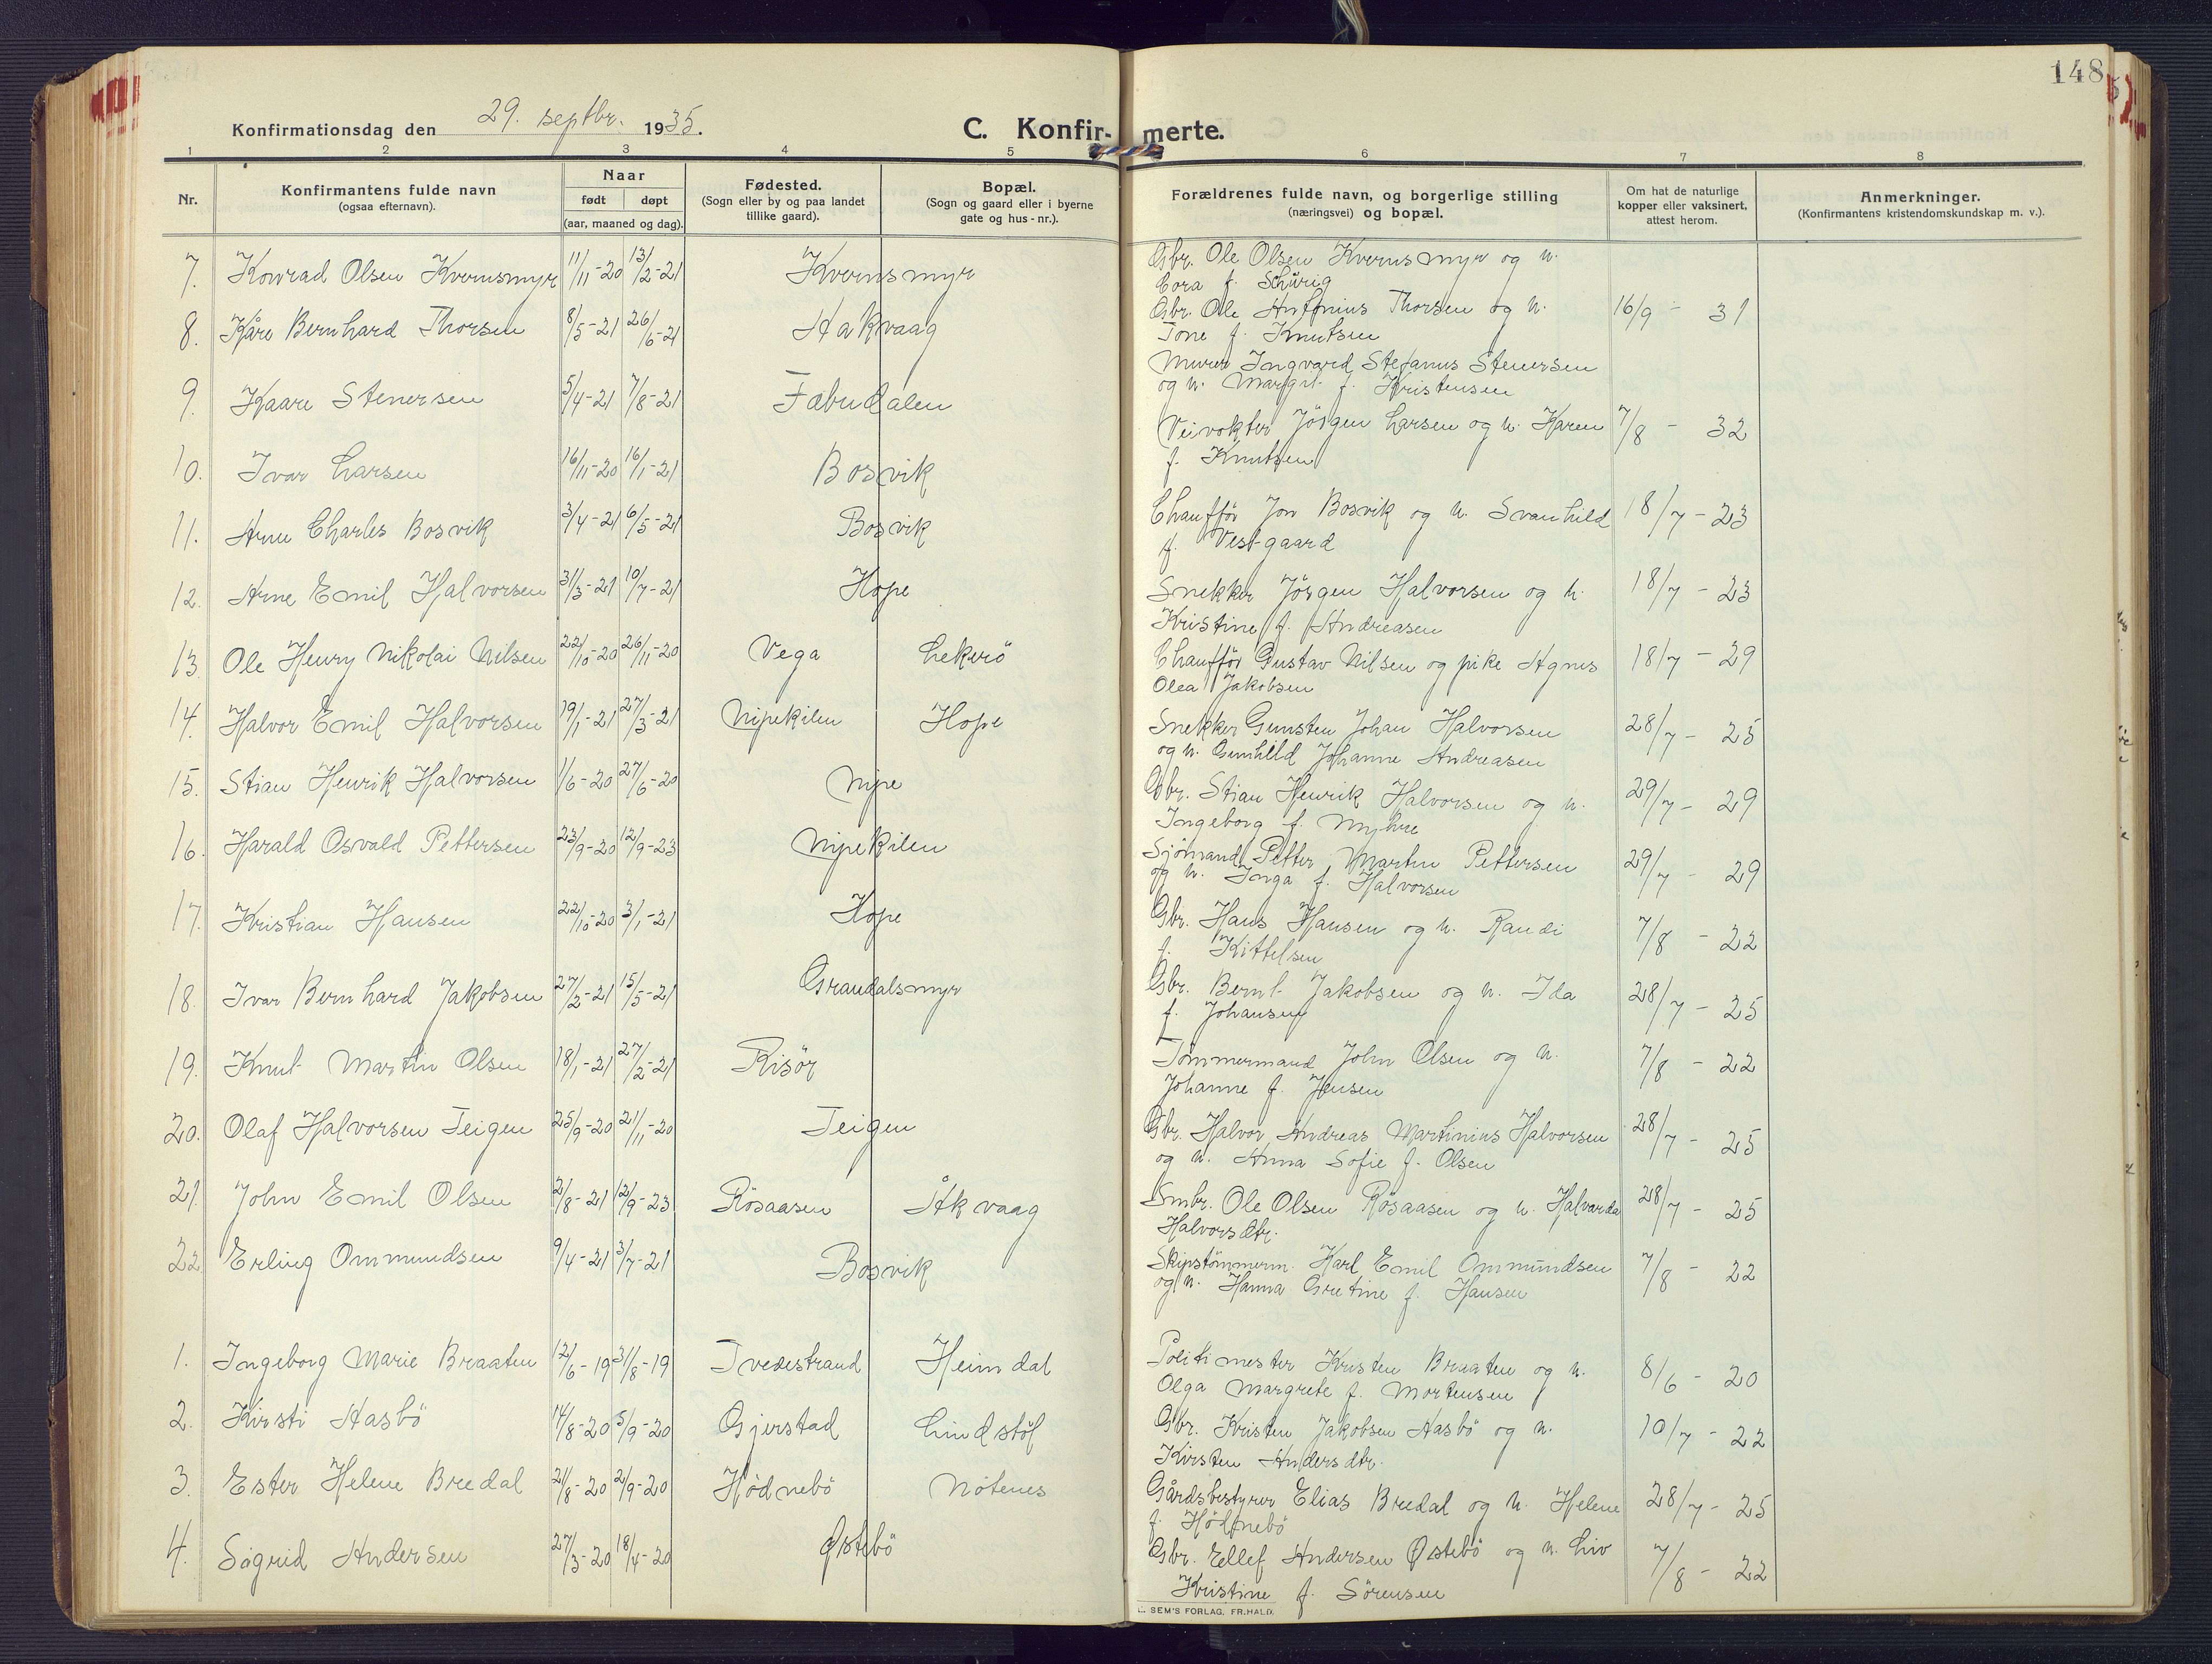 148
Konfirmationsdag den 29. septbr. 1935.
C. Konfir- merte.
1 2 3 4 5 6 7 8
Nr.
Konfirmantens fulde navn
(ogsaa efternavn).
Naar
født døpt
(aar, maaned og dag).
Fødested.
(Sogn eller by og paa landet
tillike gaard).
Bopæl.
(Sogn og gaard eller i byerne
gate og hus-nr.).
Forældrenes fulde navn, og borgerlige stilling
(næringsvei) og bopæl.
Om hat de naturlige
kopper eller vaksinert,
attest herom.
Anmerkninger.
(Konfirmantens kristendomskundskap m. v.).
7. Konrad Olsen Kvernsmyr 11/11-20 13/2-21 Kvernsmyr Gbr. Ole Olsen Kvernsmyr og h.
Cora f. Schürig
8. Kåre Bernhard Thorsen 8/5-21 26/6-21 Hakvaag Gbr. Ole Antonius Thorsen og h. 16/9 - 31
Tone f. Knutsen
9. Kaare Stenersen 5/4-21 7/8-21 Fæbudalen Murer Ingvard Stefanus Stenersen
og h. Margit f. Kristensen
10. Ivar Larsen 16/11-20 16/1-21 Bosvik Veivokter Jörgen Larsen og h. Karen 7/8 - 32
f. Knutsen
11. Arne Charles Bosvik 3/4-21 6/5-21 Bosvik Chaufför Jon Bosvik og h. Svanhild 18/7-23
f. Vestgaard
12. Arne Emil Halvorsen 31/3-21 10/7-21 Hope Snekker Jörgen Halvorsen og h. 18/7-23
Kristine f. Andreasen
13. Ole Henry Nikolai Nilsen 22/10-20 26/11-20 Vega Lekerö Chaufför Gustav Nilsen og pike Agnes 18/7-29
Olea Jakobsen
14. Halvor Emil Halvorsen 19/1-21 27/3-21 Nipekilen Hope Snekker Gunsten Johan Halvorsen 28/7- 25
og h. Gunhild Johanne Andreasen
15. Stian Henrik Halvorsen 1/6-20 27/6-20 Nipe Gbr. Stian Henrik Halvorsen og h. 29/7- 29
Ingeborg f. Myhre
16. Harald Osvald Pettersen 23/9-20 12/9-23 Nipekilen Sjömand Petter Martin Pettersen 29/7 - 29
og h. Inga f. Halvorsen
17. Kristian Hansen 22/10-20 3/1-21 Hope Gbr. Hans Hansen og h. Randi 7/8 - 22
f. Kittelsen
18. Ivar Bernhard Jakobsen 27/2-21 15/5-21 Grandalsmyr Gbr. Bernt Jakobsen og h. Ida 28/7 - 25
f. Johansen
19. Knut Martin Olsen 18/1-21 27/2-21 Risör Tömmermand John Olsen og h. 7/8 - 22
Johanne f. Jensen
20. Olaf Halvorsen Teigen 25/9-20 21/11-20 Teigen Gbr. Halvor Andreas Martinius Halvorsen 28/7 - 25
og h. Anna Sofie f. Olsen
21. John Emil Olsen 2/8-21 12/9-23 Rösaasen Åkvaag Smbr. Ole Olsen Rösaasen og h. Halvarda 28/7 - 25
Halvorsdtr.
22 Erling Ommundsen 9/4-21 3/7-21 Bosvik Skipstömmerm. Karl Emil Ommundsen 7/8 - 22
og h. Hanna Gretine f. Hansen
1. Ingeborg Marie Braaten 12/6-19 31/8-19 Tvedestrand Heimdal Politimester Kristen Braaten og h. 8/6 - 20
Olga Margrete f. Mortensen
2. Kirsti Aasbö 14/8-20 5/9-20 Gjerstad Lindstöl Gbr. Kristen Jakobsen Aasbö og h. 10/7 - 22
Kirsten Andersdtr.
3. Ester Helene Bredal 21/8-20 2/9-20 Hödnebö Nötenes Gårdsbestyrer Elias Bredal og h. Helene 28/7- 25
f. Hödnebö
4. Sigrid Andersen 27/3-20 18/4-20 Østebö Gbr. Ellef Andersen Østebö og h. Liv 7/8 - 22
Kristine f. Sörensen
SEM'S FORLAG. FR.HALD.